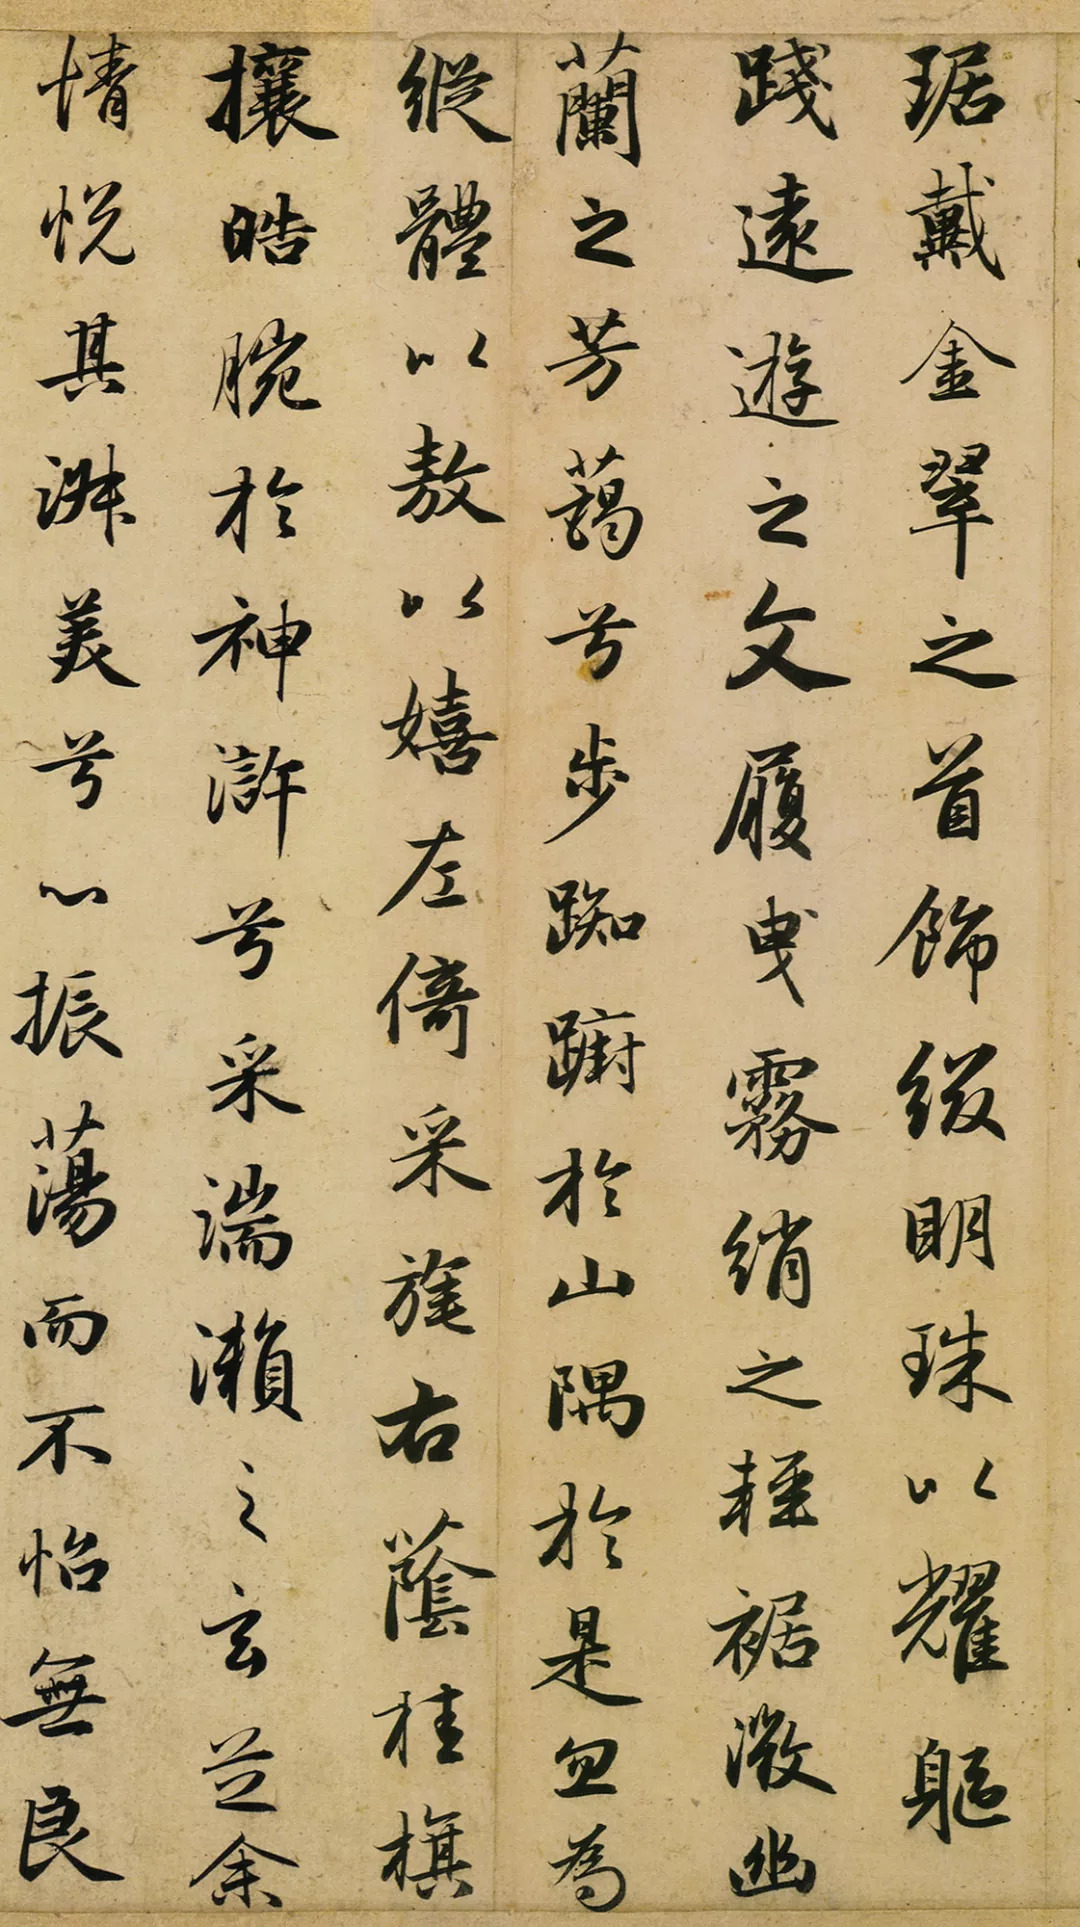 琚戴金翠之首飾綴明珠以耀軀
踐遠遊之文履曳霧綃之輕裾㣲幽
蘭之芳藹兮步踟躕於山隅於是忽為
縱體以敖以嬉左倚采旄右蔭桂旗
攘皓腕於神滸兮采湍瀨之玄芝余
情悅其淑美兮心振蕩而不怡無良